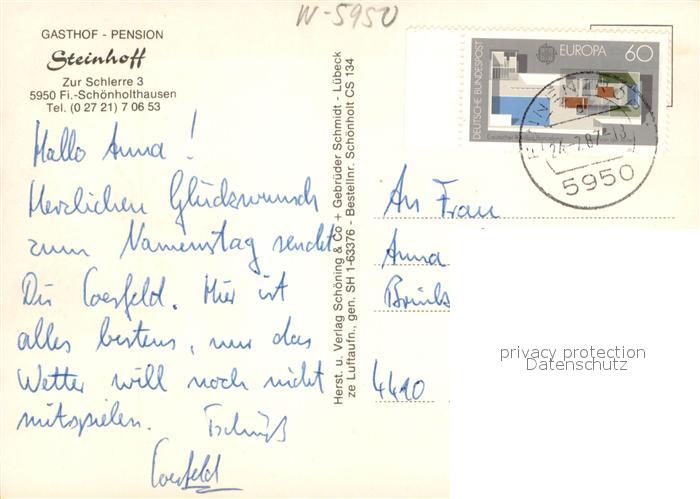 W-5950
GASTHOF - PENSION
Steinhoff
Zur Schlerre 3
5950 Fi.-Schönholthausen
Tel. (0 27 21) 7 06 53
Hallo Anna!
Herzlichen Glückwunsch
zum Namenstag sendet
Dir Coesfeld. Hier ist
alles bestens, nur das
Wetter will noch nicht
mitspielen. Tschüß
Coesfeld
Herst. u. Verlag Schöning & Co + Gebrüder Schmidt - Lübeck
ze Luftaufn., gen. SH 1-63376 - Bestellnr. Schönholt CS 134
DEUTSCHE BUNDESPOST
EUROPA 60
5950
An Frau
Anna
4410
privacy protection
Datenschutz